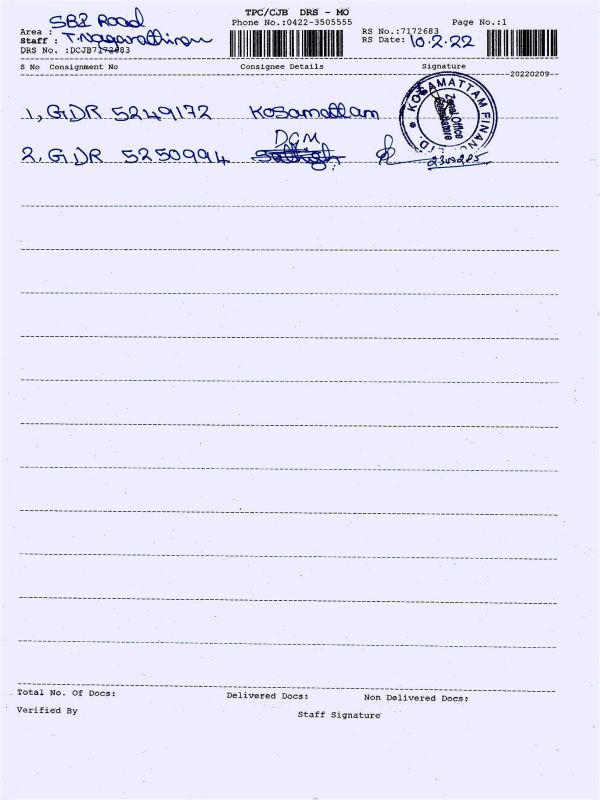 TPC/CJB DRS - MO
Phone No.:0422-3505555
Page No.:1
Area : SBI Road
Staff : T.Nagarathinam
DRS No. :DCJB7172683
RS No.:7172683
RS Date: 10.2.22
S No Consignment No Consignee Details Signature
20220209
1, GDR 5249172 Kosamattam
KOSAMATTAM FINANCE LTD.
Zonal Office
Coimbatore
DGM
2. GDR 5250994
Total No. Of Docs: Delivered Docs: Non Delivered Docs:
Verified By Staff Signature